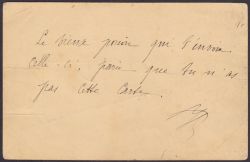 Le vieux poison qui t'envoie
celle-ci, parie que tu n'as
pas cette carte.